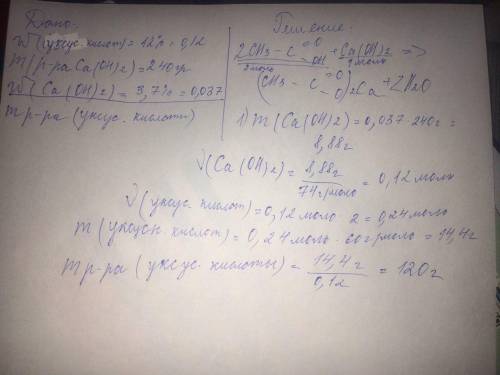 Дано:
W(уксус. кислот) = 12% = 0,12
m(р-ра Ca(OH)2) = 240гр.
W(Ca(OH)2) = 3,7% = 0,037
m р-ра (уксус. кислоты)
Решение:
2CH3 - C =O -OH + Ca(OH)2 =>
2моль 1моль
(CH3 - C =O -O)2Ca + 2H2O
1) m(Ca(OH)2) = 0,037·240г =
8,88г
ν(Ca(OH)2) = 8,88г / 74г/моль = 0,12 моль
ν(уксус. кислот) = 0,12 моль · 2 = 0,24 моль
m(уксусн. кислот) = 0,24 моль · 60г/моль = 14,4г
m р-ра (уксус. кислоты) = 14,4г / 0,12 = 120г